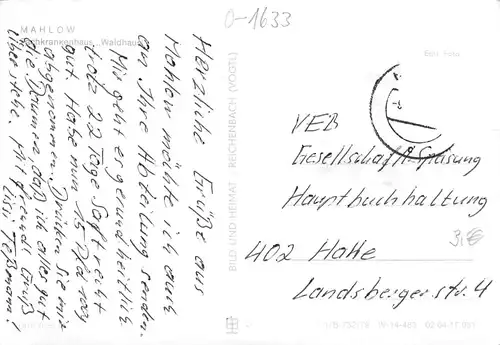 O-1633
MAHLOW
Fachkrankenhaus „Waldhaus"
Herzliche Grüße aus
Mahlow möchte ich auch
an Ihre Abteilung senden.
Mir geht es gesundheitlich
trotz 22 Tage Saft recht
gut. Habe nun 15 Pfd
abgenommen. Drücken Sie mir
die Daumen, daß ich alles gut
überstehe. Mit freundl. Gruß
BILD UND HEIMAT REICHENBACH (VOGTL)
VEB
Gesellschaftl. Speisung
Hauptbuchhaltung
402 Halle
Landsberger str. 4